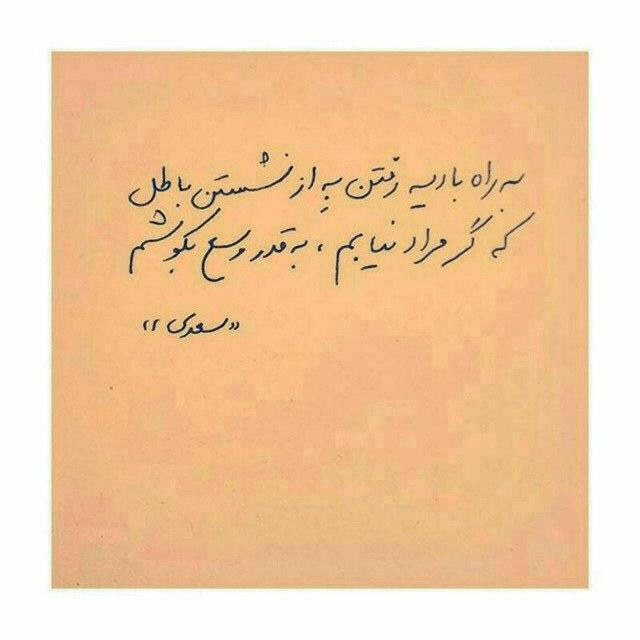 به راه بادیه رفتن بِه از نشستن باطل
که گر مراد نیابم ، به قدر وسع بکوشم
«سعدی»